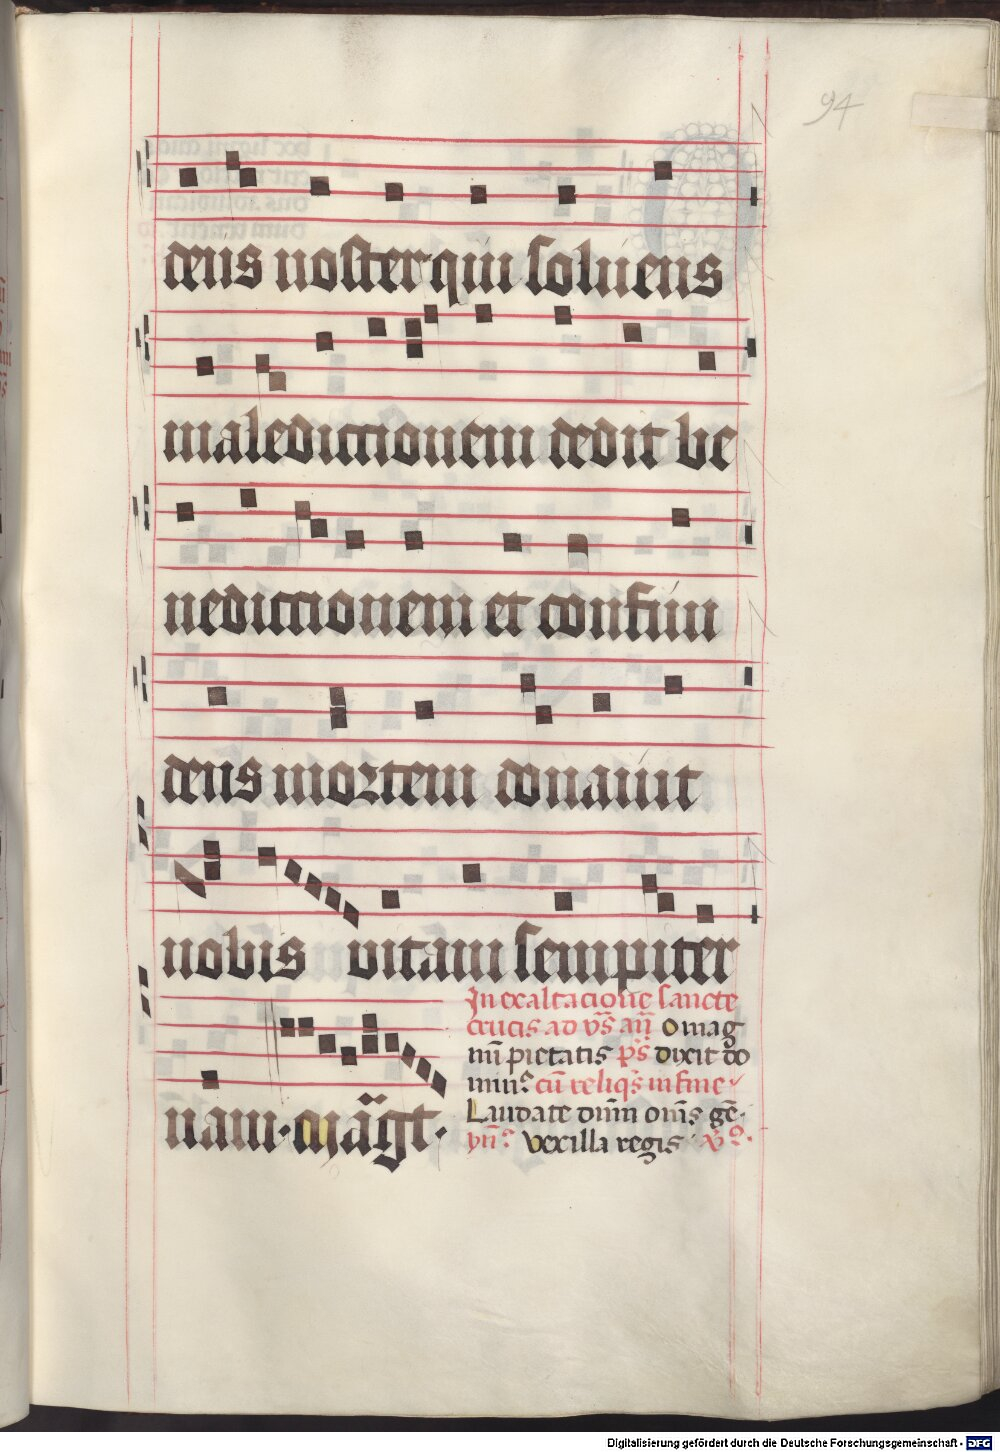 94
deus noster qui soluens
maledictionem dedit be
nedictionem et confun
dens mortem donauit
nobis vitam sempiter
nam · Mag̅t ·
In exaltacione sancte
crucis ad vs̅ an̅ O mag
nu̅ pietatis ps̅ dixit do
minus cu̅ reliqs̅ in fine
Laudate dnm̅ oms̅ ge̅ ·
yn̅s Vexilla regis
Digitalisierung gefördert durch die Deutsche Forschungsgemeinschaft - DFG